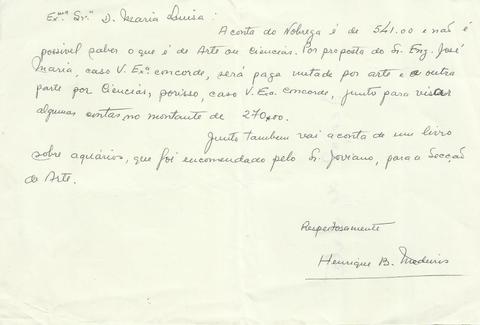 Ex.ma Sr.a D. Maria Luisa:
A conta do Nobrega é de 541.00 e não é
possivel saber o que é de Arte ou ciencias. Por proposta do Sr. Eng. José
Maria, caso V. Ex.a concorde, será paga metade por arte e a outra
parte por Ciencias; porisso, caso V. Exa. concorde, junto para visar
algumas contas, no montante de 270,00.
Junto tambem vai a conta de um livro
sobre aquários, que foi encomendado pelo Sr. Joviano, para a Secção
de Arte.
Respeitosamente
Henrique B. Medeiros